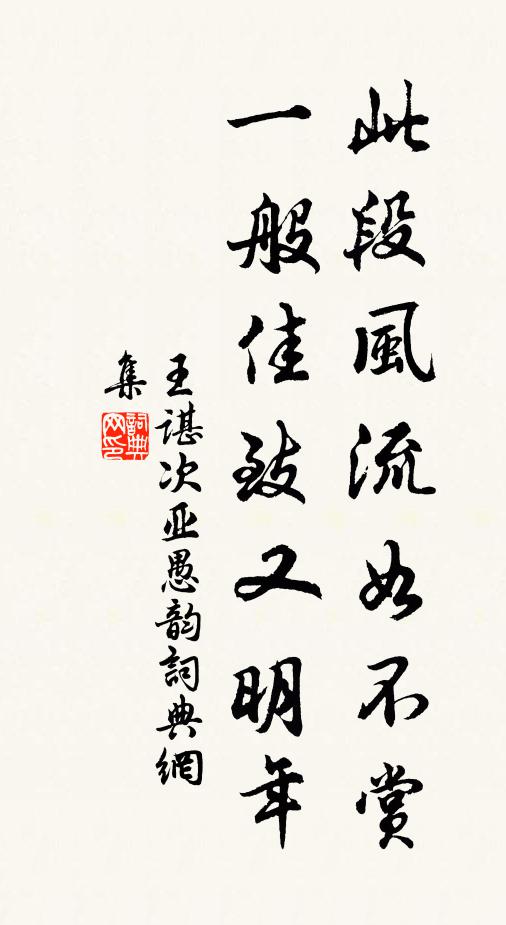 此段風流如不賞
一般佳致又明年
王諶次亚愚韵詞典網
集
詞典
网印